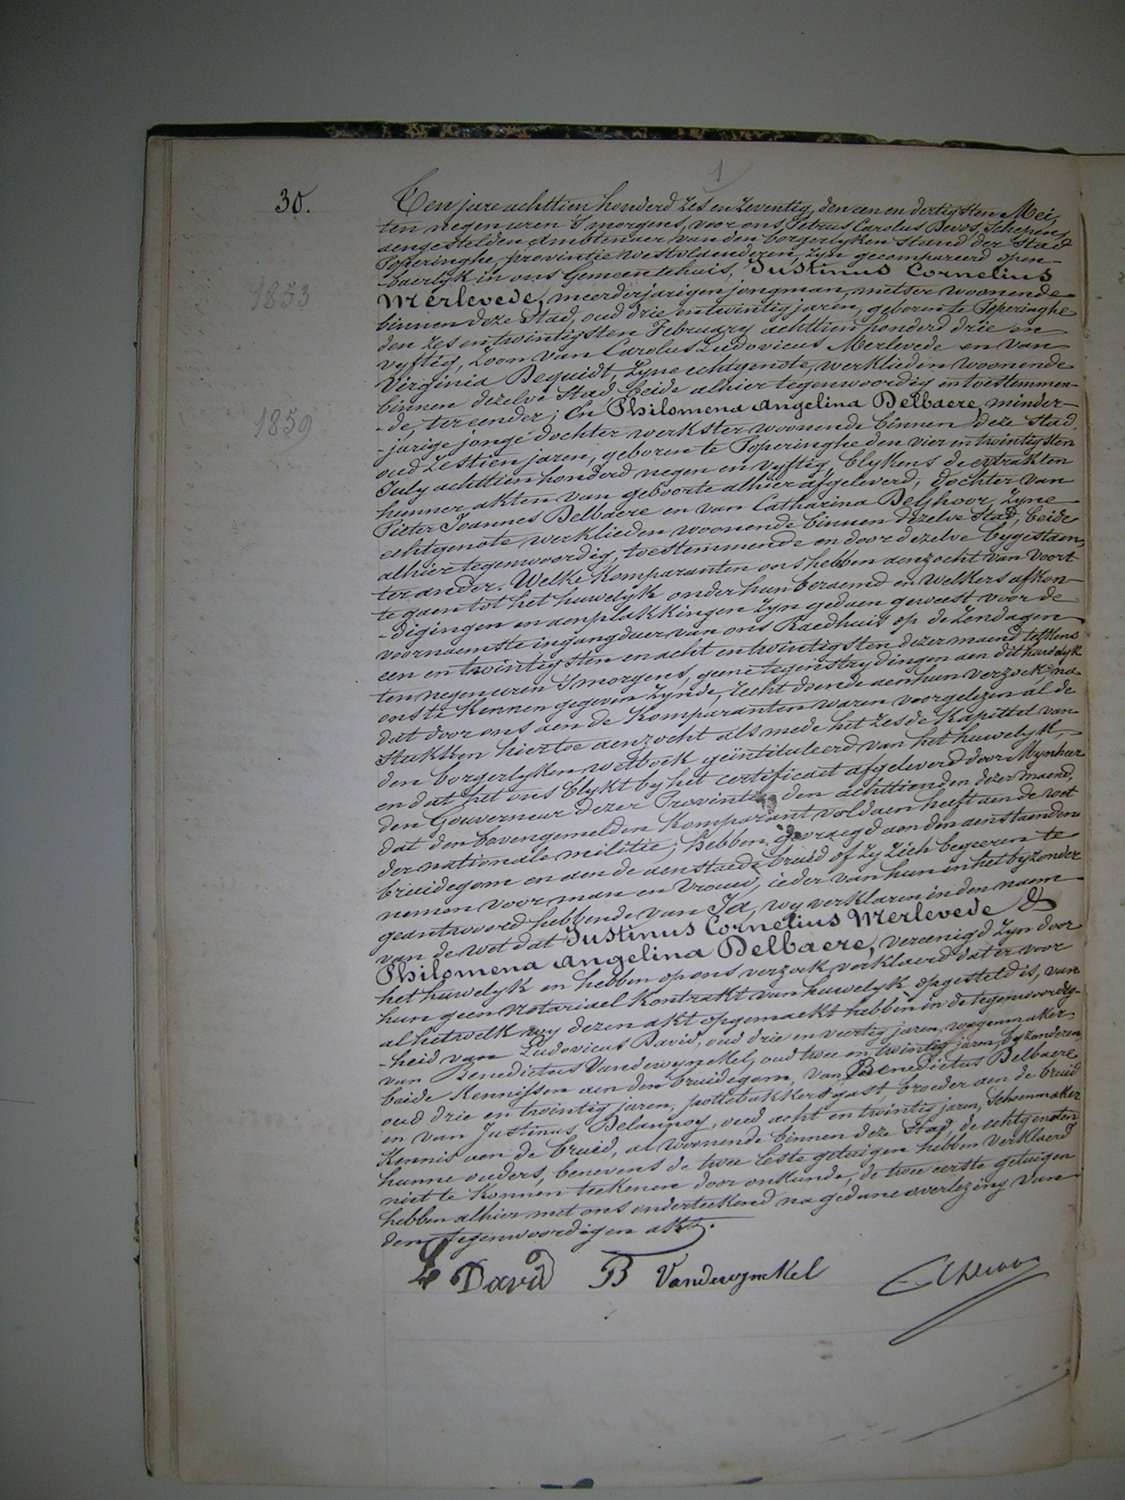 1
30.
Ten jare achttien honderd zes en zeventig, den een en dertigsten Mei,
ten negen uren 's morgens, voor ons, Petrus Carolus Devos, Schepen,
aengestelden Ambtenaer van den borgerlyken Stand der Stad
Poperinghe, provintie westvlaenderen, zyn gecompareerd open-
-baerlyk in ons Gemeentehuis, Justinus Cornelius
1853
Merlevede, meerderjarigen jongman, metser woonende
binnen deze Stad, oud drie en twintig jaren, geboren te Poperinghe
den zes en twintigsten February achttien honderd drie en
vyftig, Zoon van Carolus Ludovicus Merlevede en van
Virginia Dequidt, zyne echtgenote, werklieden woonende
binnen dezelve Stad, beide alhier tegenwoordig en toestemmen-
1859
-de, ter eender; En Philomena Angelina Delbaere, minder-
-jarige jonge dochter werkster woonende binnen deze Stad,
oud zestien jaren, geboren te Poperinghe den vier en twintigsten
July achttien honderd negen en vyftig, blykens de extrakten
hunner akten van geboorte alhier afgeleverd, dochter van
Pieter Joannes Delbaere en van Catharina Delhoor, zyne
echtgenote, werklieden woonende binnen dezelve Stad, beide
alhier tegenwoordig, toestemmende en door dezelve bygestaen,
ter ander. Welke Komparanten ons hebben aenzocht van voort
te gaen tot het huwelyk onder hun beraemd en welkers afkon-
-digingen en aenplakkingen zyn gedaen geweest voor de
voornaemste ingangduer van ons Raedhuis op de Zondagen
een en twintigsten en acht en twintigsten dezer maend telkens
ten negen uren 's morgens, geene tegenstrydingen aen dit huwelyk
ons te kennen gegeven zynde, recht doende aen hun verzoek, na
dat door ons aen de Komparanten waren voorgelezen al de
Stukken hiertoe aenzocht als mede het zesde Kapittel van
den borgerlyken wetboek geïntituleerd van het huwelyk,
en dat het ons blykt by het certificaet afgeleverd door Mynheer
den Gouverneur dezer Provintie den achttienden dezer maend,
dat den bovengemelden Komparant voldaen heeft aen de wet
der nationale militie, hebben gevraegd aen den aenstaenden
bruidegom en aen de aenstaede bruid of zy zich begeeren te
nemen voor man en vrouw, ieder van hun in het byzonder
geantwoord hebbende van Ja, wy verklaren in den naem
van de wet dat Justinus Cornelius Merlevede &
Philomena Angelina Delbaere, vereenigd zyn door
het huwelyk en hebben op ons verzoek verklaerd dat er voor
hun geen notariael kontrakt van huwelyk opgesteld is, van
al hetwelk wy dezen akt opgemaekt hebben in de tegenwoordig-
-heid van Ludovicus David, oud drie en veertig jaren, wagenmaker
van Benedictus Vandewynckel, oud twee en twintig jaren, byzonderen
beide Kennissen aen den bruidegom, van Benedictus Delbaere,
oud drie en twintig jaren, pottebakkersgast, broeder aen de bruid
en van Justinus Delannoy, oud acht en twintig jaren, schoenmaker
Kennis aen de bruid, al woonende binnen deze Stad, de echtgenoten
hunne ouders, benevens de twee leste getuigen hebben verklaerd
niet te konnen teekenen door onkunde, de twee eerste getuigen
hebben alhier met ons onderteekend na gedane overlezing van
den tegenwoordigen akt.
L David B Vandewynckel